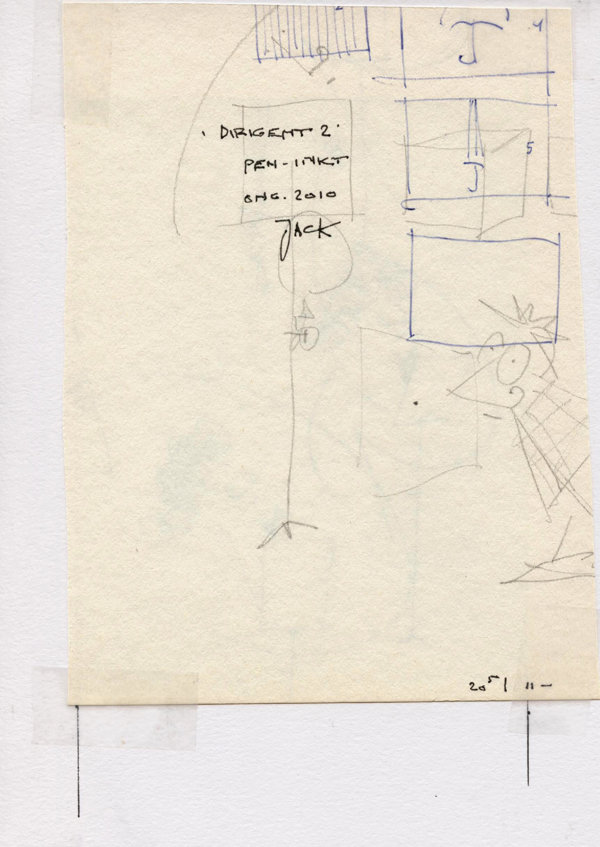 4
5
'DIRIGENT 2'
PEN-INKT
ONG. 2010
JACK
20⁵ / 11 -